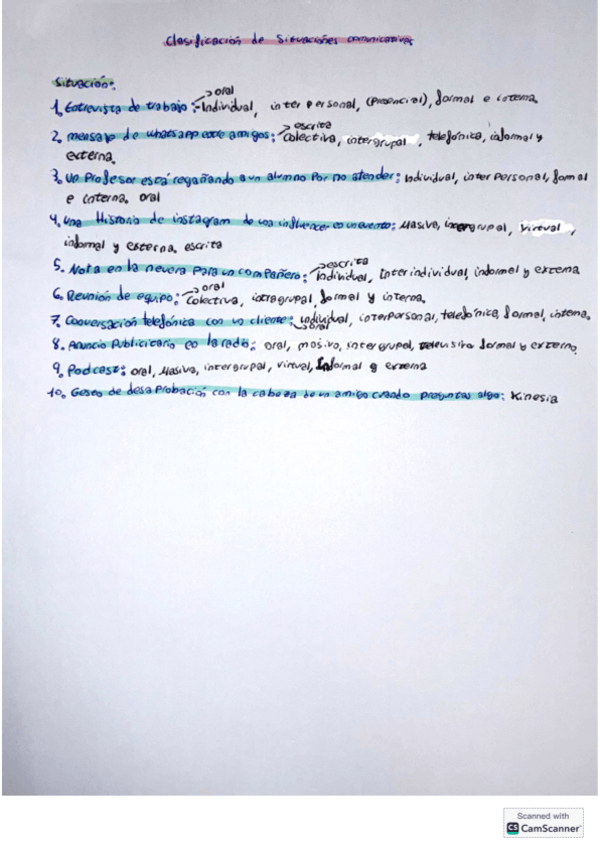 Clasificación de Situaciones comunicativas
Situación:
oral
1. Entrevista de trabajo: Individual, interpersonal, (presencial), formal e interna.
escrita
2. mensaje de whatsapp entre amigos: Colectiva, intergrupal, telefónica, informal y
externa.
3. Un Profesor está regañando a un alumno por no atender: Individual, interpersonal, formal
e interna. oral
4. Una Historia de instagram de una influencer en un evento: Masiva, intergrupal, virtual,
informal y externa. escrita
escrita
5. Nota en la nevera para un compañero: Individual, interindividual, informal y externa
oral
6. Reunión de equipo: Colectiva, intragrupal, formal y interna.
7. Conversación telefónica con un cliente: individual, interpersonal, telefónica, formal, interna.
oral
8. Anuncio Publicitario en la radio: oral, masivo, intergrupal, televisiva formal y externo.
9. Podcast: oral, Masiva, intergrupal, virtual, Informal y externa
10. Gesto de desaprobación con la cabeza de un amigo cuando preguntas algo: Kinesia
Scanned with
CS CamScanner